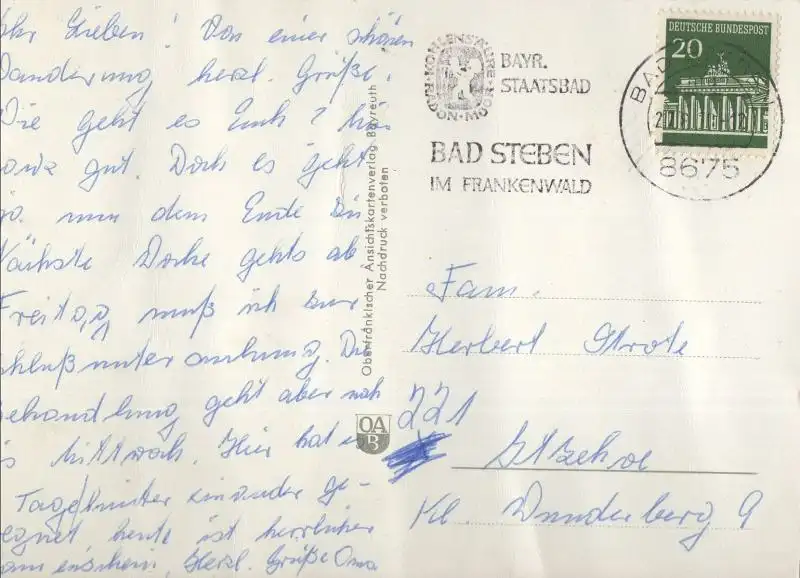 Ihr Lieben! Von einer schönen
Wanderung, herzl. Grüße.
Wie geht es Euch? Mir
sowa gut. Doch es geht
so. nun dem Ende zu
Nächste Woche gehts ab
Freitag muß ich zur
Schlußuntersuchung. Die
Behandlung geht aber noch
bis Mittwoch. Hier hat es
Tage hinter einander ge-
regnet heute ist herrlicher
Sonnenschein. Herzl. Grüße Oma
Oberfränkischer Ansichtskartenverlag Bayreuth
Nachdruck verboten
OA
B
KOHLENSÄURE · MOOR · RADON
BAYR.
STAATSBAD
BAD STEBEN
IM FRANKENWALD
DEUTSCHE BUNDESPOST
20
BAD
8675
Fam.
Herbert Strote
221
Itzehoe
Kl. Wunderberg 9